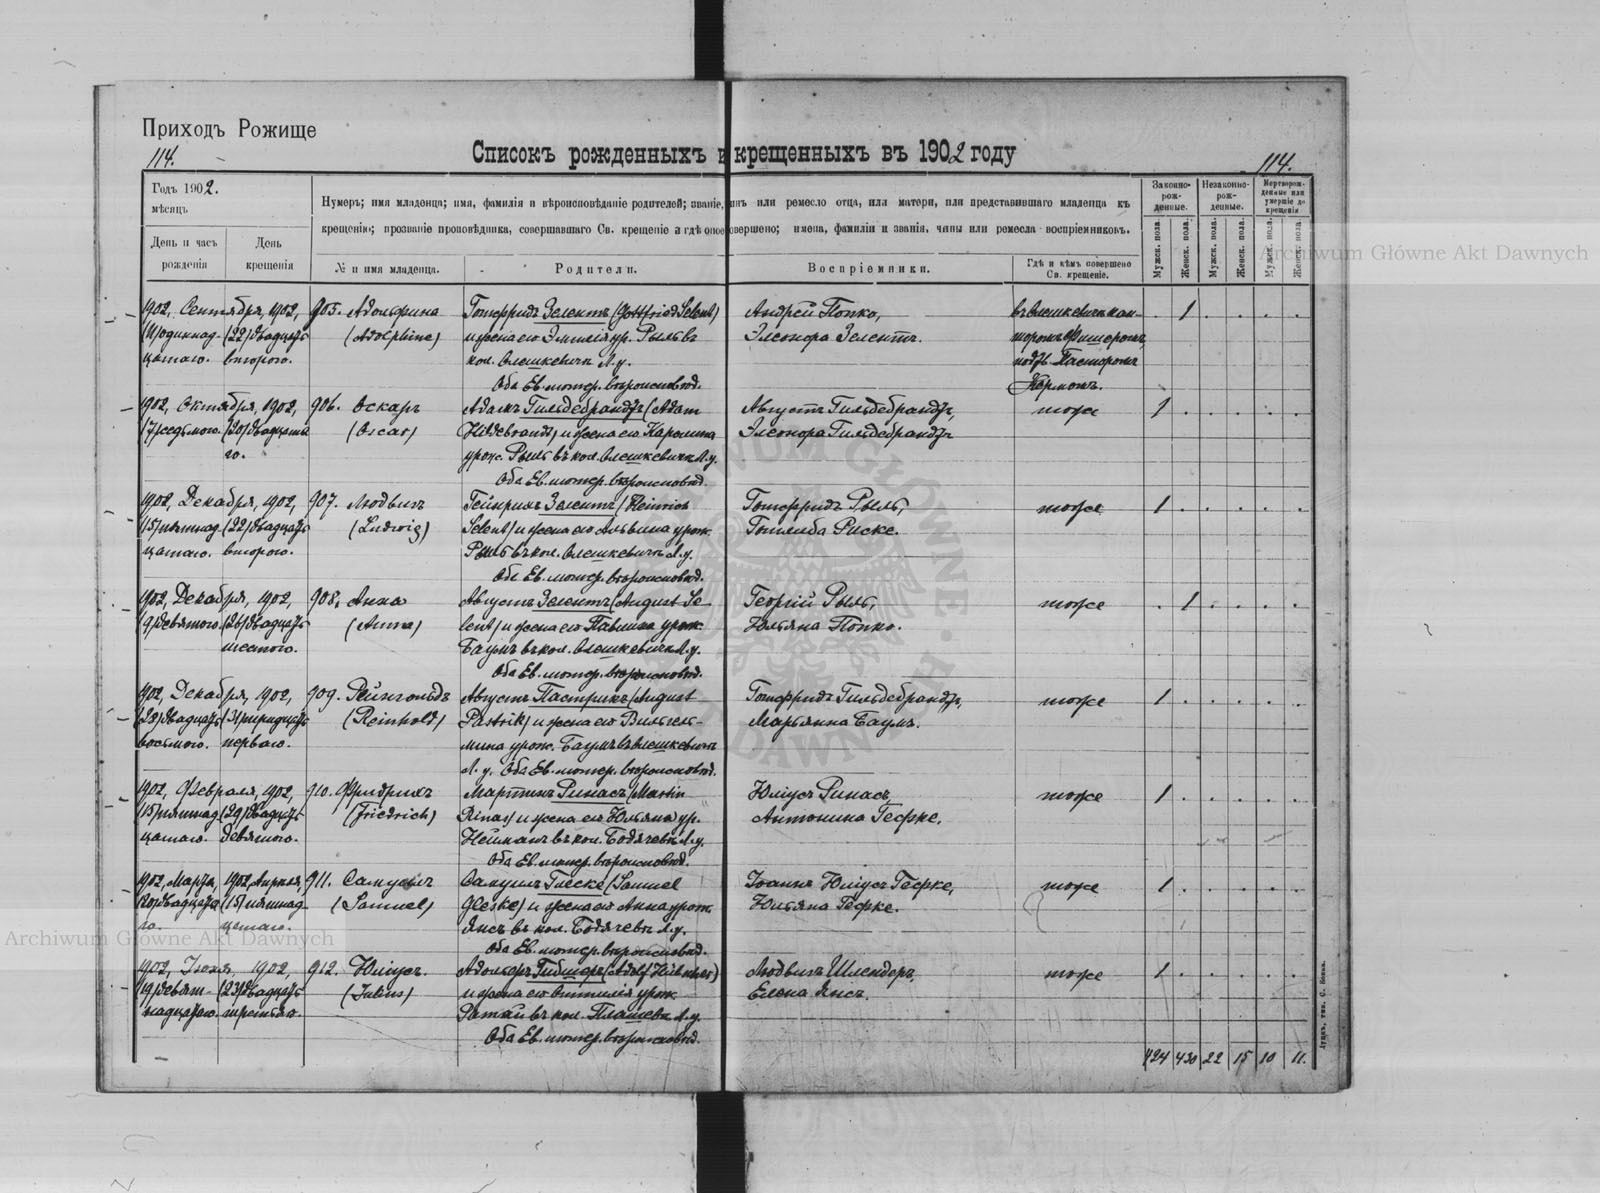 Приходъ Рожище
114.
Списокъ рожденныхъ и крещенныхъ въ 1902 году
114.
Годъ 1902.
мѣсяцъ
День и часъ рожденія
День крещенія
Нумеръ; имя младенца; имя, фамилія и вѣроисповѣданіе родителей; званіе, чинъ или ремесло отца, или матери, или представившаго младенца къ
крещенію; прозваніе проповѣдника, совершавшаго Св. крещеніе и гдѣ оное совершено; имена, фамиліи и званія, чины или ремесла воспріемниковъ.
№ и имя младенца.
Родители.
Воспріемники.
Гдѣ и кѣмъ совершено Св. крещеніе.
Законно-рож-денные.
Незаконно-рож-денные.
Мертворож-денные или умершіе до крещенія
Мужск. пола.
Женск. пола.
Мужск. пола.
Женск. пола.
Мужск. пола.
Женск. пола.
Archiwum Główne Akt Dawnych
1902, Сентября, 1902, 905. Адольфина Готфридъ Зелентъ (Gottfried Selent) Андрей Попко, 1
(11) одиннад- (22) двадцать (Adolphine) и жена его Эмилія ур. Рыль въ Элеонора Зелентъ.
цатаго. второго. кол. Олешкевичи Л. у. Пасторомъ
Оба Ев. лютер. вѣроисповѣд.
1902, Октября, 1902, 906. Оскаръ Адамъ Гильдебрандтъ (Adam Августъ Гильдебрандтъ, тоже 1
(7) седьмого. (20) двадцата (Oscar) Hildebrandt) и жена его Каролина Элеонора Гильдебрандтъ
го. урож. Рыль въ кол. Олешкевичи Л. у.
Оба Ев. лютер. вѣроисповѣд.
1902, Декабря, 1902, 907. Людвигъ Гейнрихъ Зелентъ (Heinrich Готфридъ Рыль, тоже 1
(15) пятнад- (22) двадцать (Ludwig) Selent) и жена его Альвина урож. Готлиба Риске.
цатаго. второго. Рыль въ кол. Олешкевичи Л. у.
Оба Ев. лютер. вѣроисповѣд.
1902, Декабря, 1902, 908. Анна Августъ Зелентъ (August Se Георгій Рыль, тоже 1
(9) девятого. (26) двадцать (Anna) lent) и жена его Павлина урож. Юльяна Попко.
шестого. Баумъ въ кол. Олешкевичи Л. у.
Оба Ев. лютер. вѣроисповѣд.
1902, Декабря, 1902, 909. Рейнгольдъ Августъ Пастрикъ (August Готфридъ Гильдебрандтъ, тоже 1
(28) двадцать (31) тридцать (Reinhold) Pastrik) и жена его Вильгель- Марьянна Баумъ.
восьмого. перваго. мина урож. Баумъ въ Олешкевичи
Л. у. Оба Ев. лютер. вѣроисповѣд.
1902, Февраля, 1902, 910. Фридрихъ Мартинъ Ринасъ (Martin Юліусъ Ринасъ, тоже 1
(15) пятнад (29) двадцать (Friedrich) Rinas) и жена его Юльяна ур. Антонина Гефке.
цатаго. девятого. Нейманъ въ кол. Бодячевъ Л. у.
Оба Ев. лютер. вѣроисповѣд.
1902, Марта, 1902, Апрѣля, 911. Самуелъ Самуилъ Глеске (Samuel Іоаннъ Юліусъ Гефке, тоже 1
(20) двадцата (15) пятнад- (Samuel) Gleske) и жена его Анна урож. Юльяна Гефке.
го. цатаго. Янсъ въ кол. Бодячевъ Л. у.
Оба Ев. лютер. вѣроисповѣд.
1902, Іюня, 1902, 912. Юліусъ. Адольфъ Гибнеръ (Adolf Hübner) Людвигъ Шлендеръ, тоже 1
(19) девят- (23) двадцать (Julius) и жена его Оттилія урож. Елена Янсъ.
надцатаго. третьяго. Ратай въ кол. Плашева Л. у.
Оба Ев. лютер. вѣроисповѣд.
424 430 22 15 10 11.
Archiwum Główne Akt Dawnych